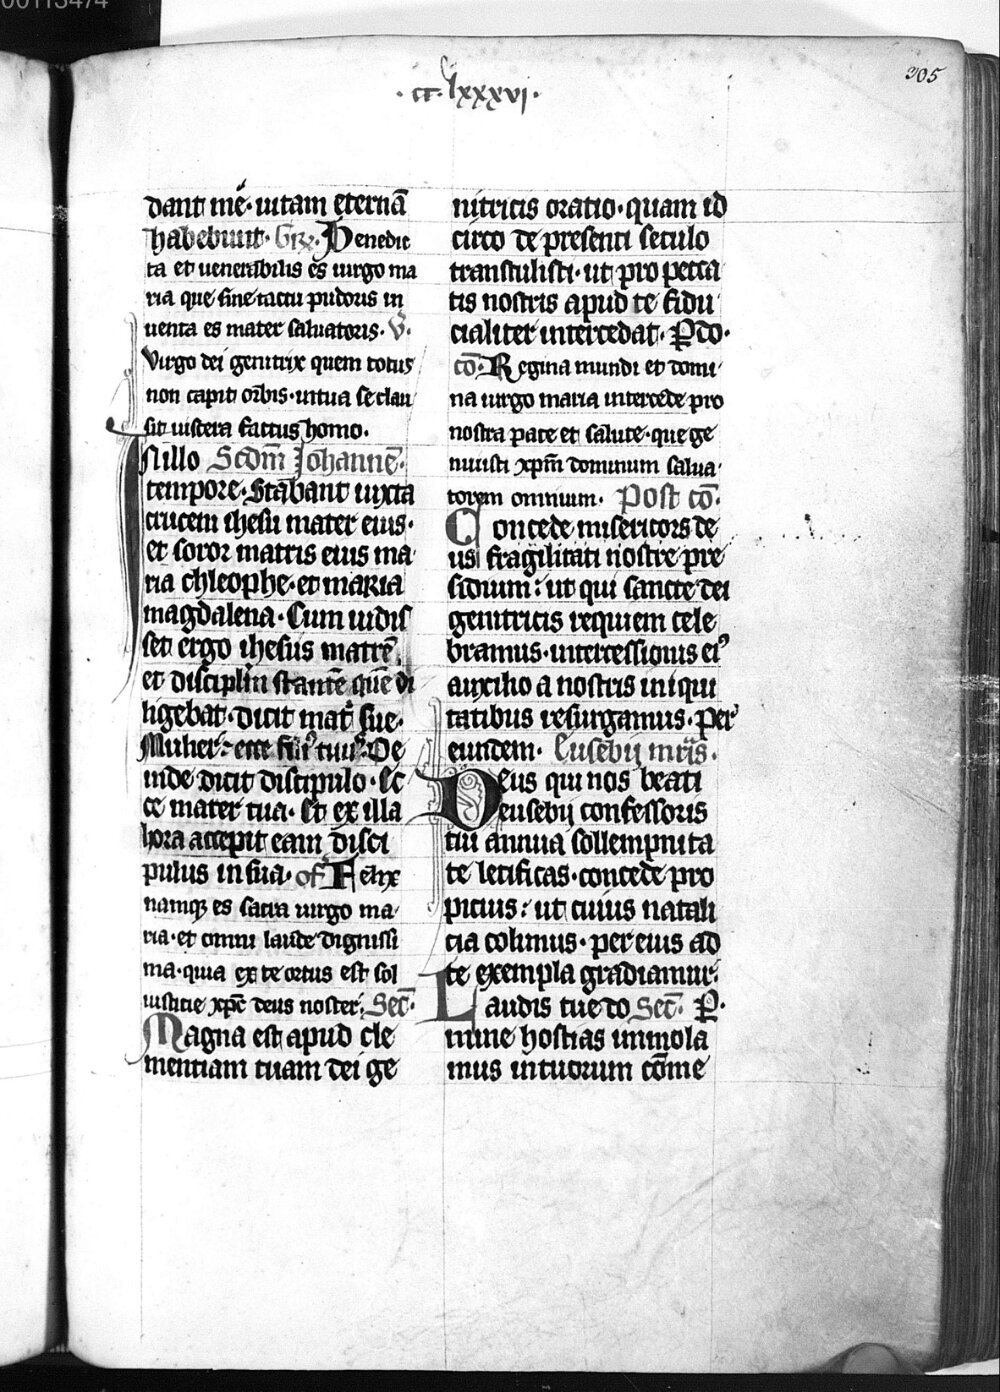 00113474
305
·cc·lxxxvj·
dant me᷑· uitam eternā
habebunt· Gr̄· Benedic
ta et uenerabilis es uirgo ma
ria que sine tactu pudoris in
uenta es mater saluatoris· V̾·
Virgo dei genitrix quem totus
non capit orbis· in tua se clau
sit uiscera factus homo·
In illo Scdm̄ Johannē·
tempore· Stabant iuxta
crucem ihesu mater eius·
et soror matris eius ma
ria chleophe· et maria
magdalena· Cum uidis
set ergo ihesus matrē·
et disciplm̄ stantē quē di
ligebat· dicit matˀ sue·
Mulier· ecce filiꝰ tuuꝰ· De
inde dicit discipulo· Ec
ce mater tua· Et ex illa
hora accepit eam disci
pulus in sua· of̄ Felix
namq; es sacra uirgo ma
ria· et omni laude dignissi
ma· quia ex te ortus est sol
iusticie xp̄c deus noster· Sec̄·
Magna est apud cle
mentiam tuam dei ge
nitricis oratio· quam id
circo de presenti seculo
transtulisti· ut pro pecca
tis nostris apud te fidu
cialiter intercedat· P̱ do·
cō· Regina mundi et domi
na uirgo maria intercede pro
nostra pace et salute· que ge
nuisti xp̄m dominum salua
torem omnium· Post cō·
Concede misericors de
us fragilitati nostre pre
sidium· ut qui sancte dei
genitricis requiem cele
bramus· intercessionis eiꝰ
auxilio a nostris iniqui
tatibus resurgamus· Per
eundem· Eusebij mr̄is·
Deus qui nos beati
eusebij confessoris
tui annua sollempnita
te letificas· concede pro
picius· ut cuius natali
cia colimus· per eius ad
te exempla gradiamur·
Laudis tue do Sec̄· P̱·
mine hostias immola
mus in tuorum cōme